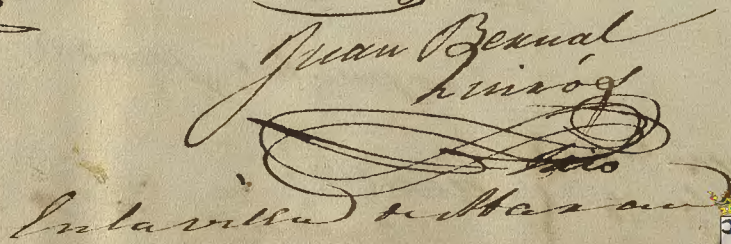 Juan Bernal
Quirós
En la villa de